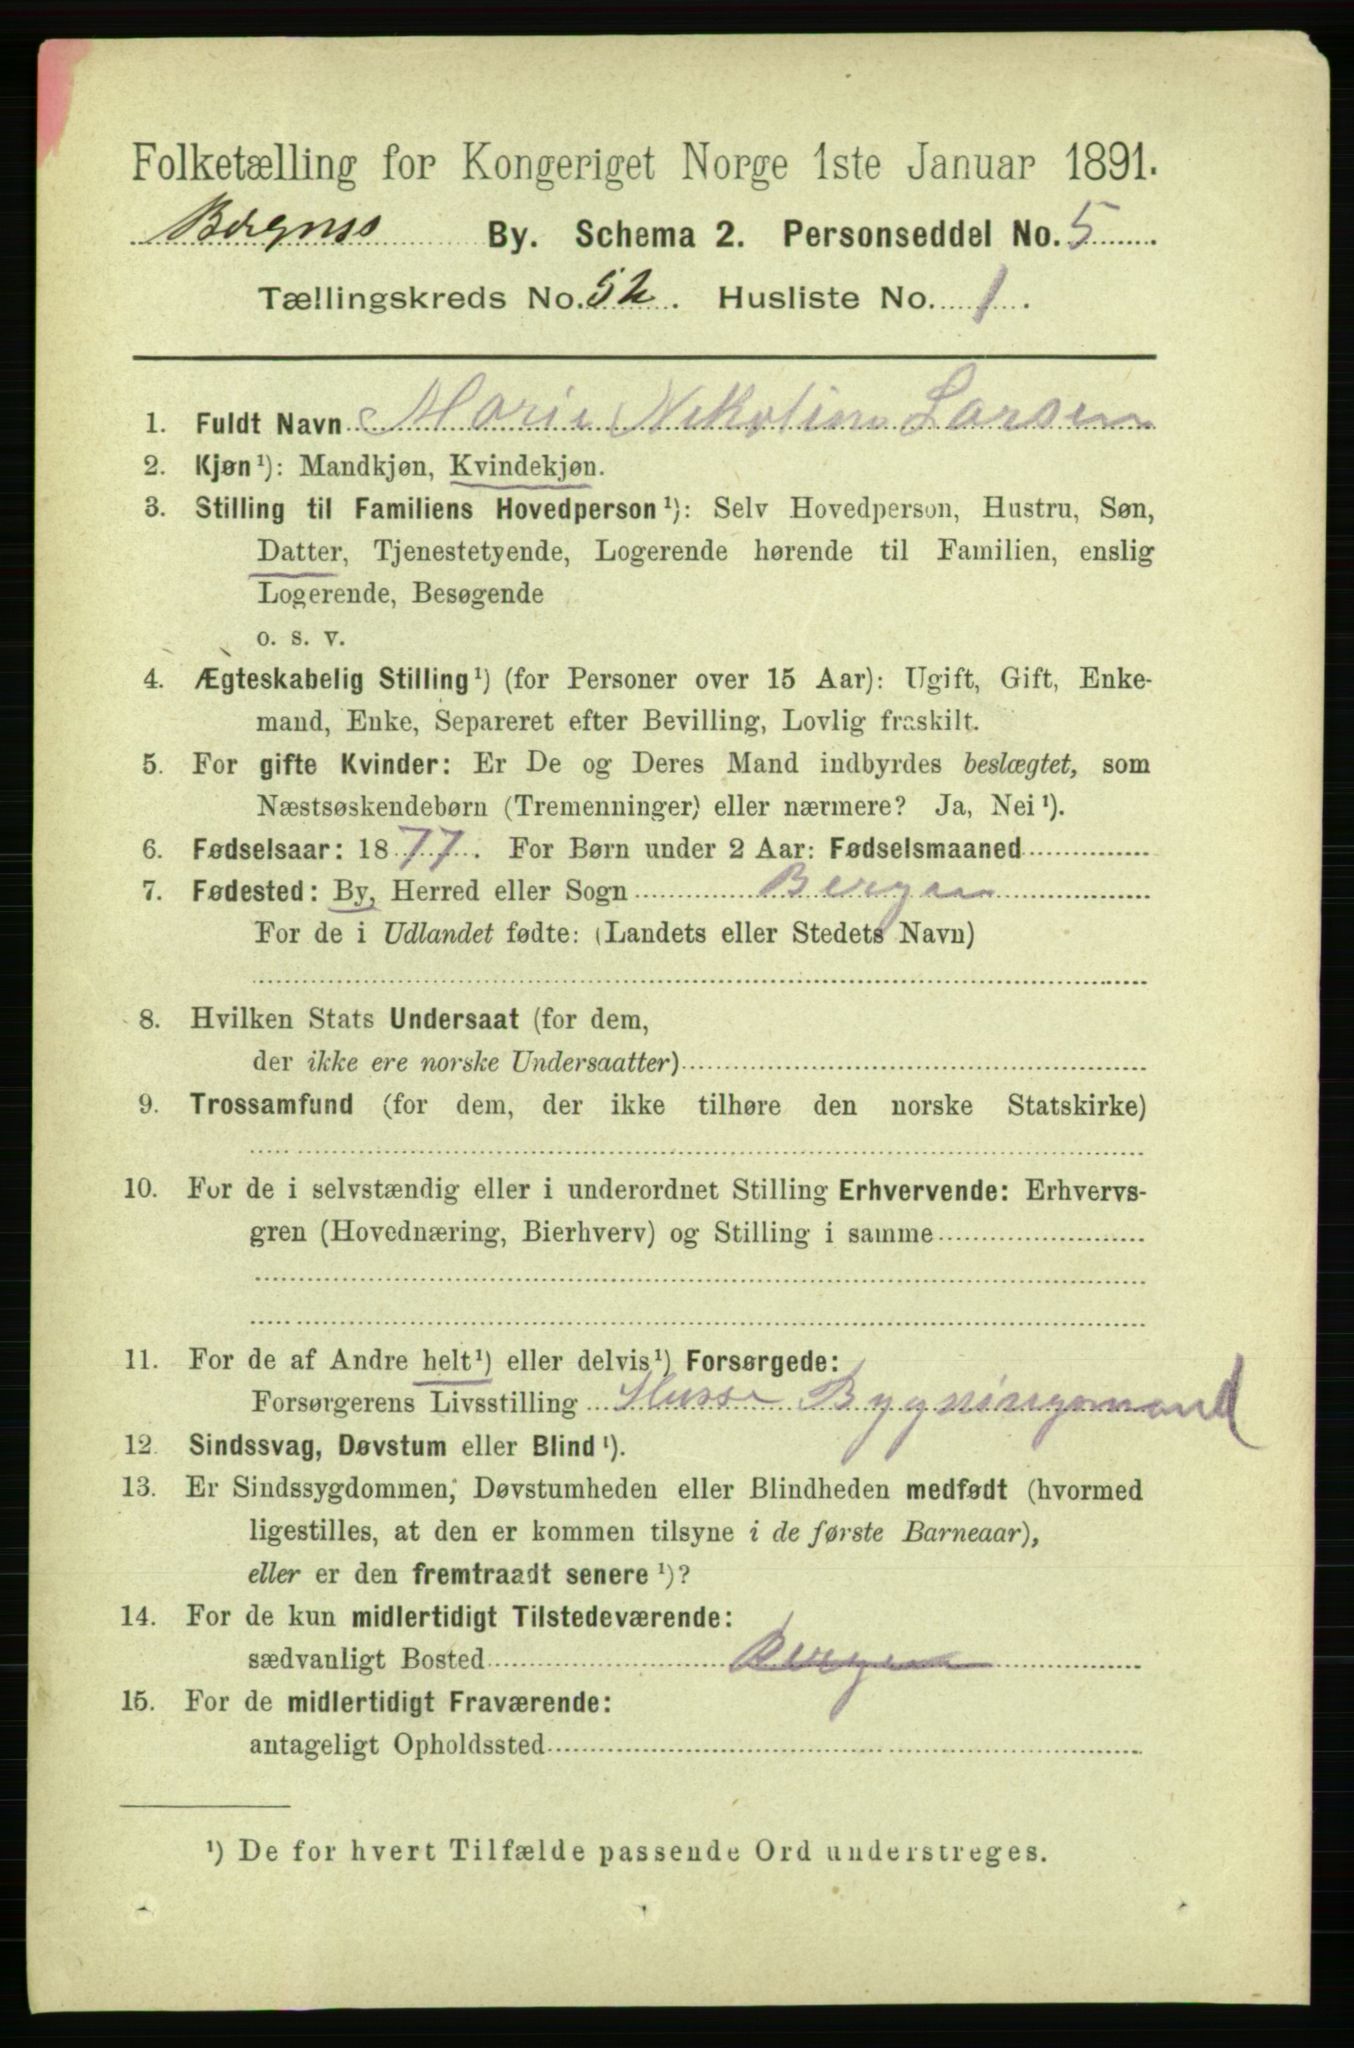 Folketælling for Kongeriget Norge 1ste Januar 1891.
Bergens By. Schema 2. Personseddel No. 5
Tællingskreds No. 52. Husliste No. 1.
1. Fuldt Navn Marie Nikoline Larsen
2. Kjøn ¹): Mandkjøn, Kvindekjøn.
3. Stilling til Familiens Hovedperson ¹): Selv Hovedperson, Hustru, Søn,
Datter, Tjenestetyende, Logerende hørende til Familien, enslig
Logerende, Besøgende
o. s. v.
4. Ægteskabelig Stilling ¹) (for Personer over 15 Aar): Ugift, Gift, Enke-
mand, Enke, Separeret efter Bevilling, Lovlig fraskilt.
5. For gifte Kvinder: Er De og Deres Mand indbyrdes beslægtet, som
Næstsøskendebørn (Tremenninger) eller nærmere? Ja, Nei ¹).
6. Fødselsaar: 1877. For Børn under 2 Aar: Fødselsmaaned
7. Fødested: By, Herred eller Sogn Bergen
For de i Udlandet fødte: (Landets eller Stedets Navn)
8. Hvilken Stats Undersaat (for dem,
der ikke ere norske Undersaatter)
9. Trossamfund (for dem, der ikke tilhøre den norske Statskirke)
10. For de i selvstændig eller i underordnet Stilling Erhvervende: Erhvervs-
gren (Hovednæring, Bierhverv) og Stilling i samme
11. For de af Andre helt ¹) eller delvis ¹) Forsørgede:
Forsørgerens Livsstilling Husse Bygningsmand
12. Sindssvag, Døvstum eller Blind ¹).
13. Er Sindssygdommen, Døvstumheden eller Blindheden medfødt (hvormed
ligestilles, at den er kommen tilsyne i de første Barneaar),
eller er den fremtraadt senere ¹)?
14. For de kun midlertidigt Tilstedeværende:
sædvanligt Bosted Bergen
15. For de midlertidigt Fraværende:
antageligt Opholdssted
¹) De for hvert Tilfælde passende Ord understreges.